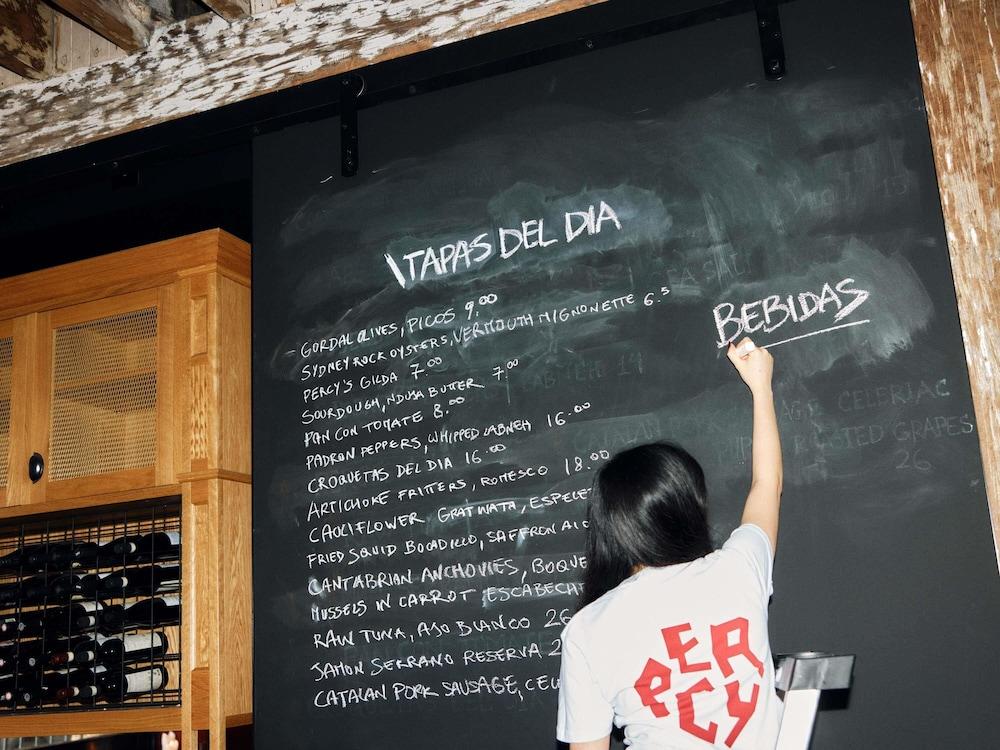 TAPAS DEL DIA
GORDAL OLIVES, PICOS 9.00
SYDNEY ROCK OYSTERS, VERMOUTH MIGNONETTE 6.5
PERCY'S GILDA 7.00
SOURDOUGH, NDUJA BUTTER 7.00
PAN CON TOMATE 8.00
PADRON PEPPERS, WHIPPED LABNEH 16.00
CROQUETAS DEL DIA 16.00
ARTICHOKE FRITTERS, ROMESCO 18.00
CAULIFLOWER GRATINATA, ESPELET
FRIED SQUID BOCADILLO, SAFFRON AIO
CANTABRIAN ANCHOVIES, BOQUE
MUSSELS IN CARROT ESCABECH
RAW TUNA, AJO BLANCO 26
JAMON SERRANO RESERVA 2
CATALAN PORK SAUSAGE, CEL
BEBIDAS
CELERIAC
GRAPES
26
PERCY